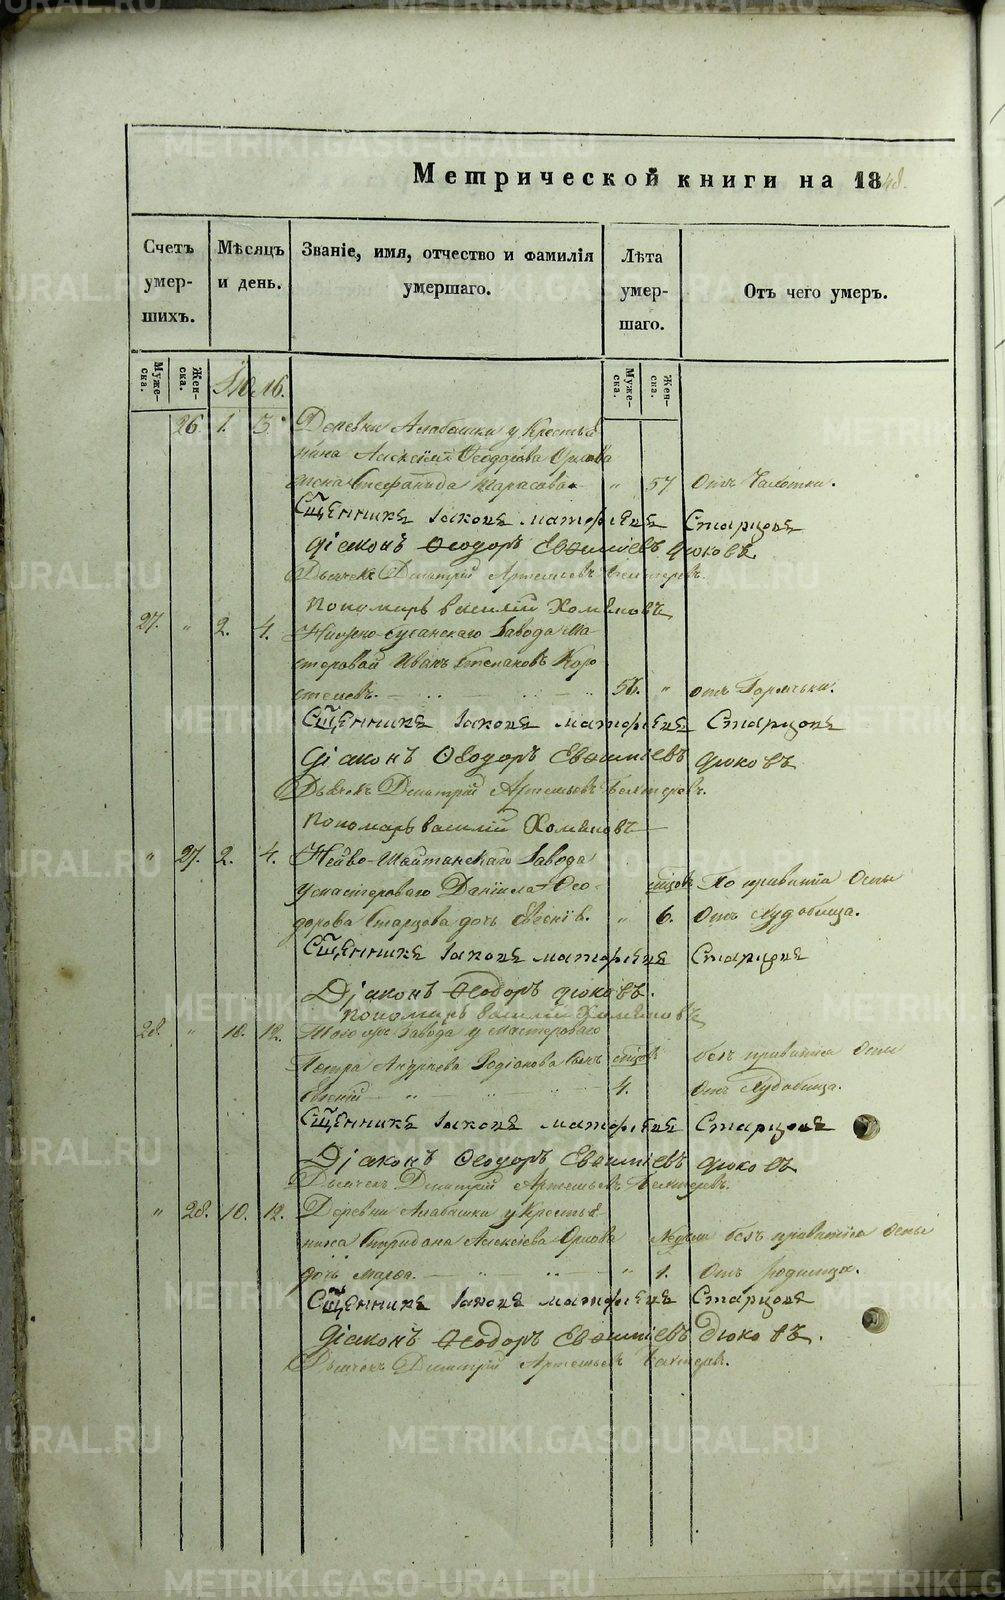 METRIKI.GASO-URAL.RU
Метрической книги на 1848.
Счетъ умершихъ.
Мѣсяцъ и день.
Званіе, имя, отчество и фамилія умершаго.
Лѣта умершаго.
Отъ чего умеръ.
Мужеска.
Женска.
Мужеска.
Женска.
26. 1. 3. Деревни Алабашки у Крестья
нина Алексія Ѳеодорова Орлова
жена Стефанида Тарасова „ 57 Отъ Чахотки.
Сщенникъ Іаковъ Матѳіевъ Старцовъ
Діаконъ Ѳеодоръ Евѳиміевъ Дюковъ
Дьячекъ Дмитрій Артемьевъ
Пономарь Василій Хомяковъ
27. „ 2. 4. Нижно-Сусанскаго Завода Ма
стеровой Иванъ Степановъ Коро
стелевъ. 56. „ отъ Горячьки.
Сщенникъ Іаковъ Матѳіевъ Старцовъ
Діаконъ Ѳеодоръ Евѳиміевъ Дюковъ
Дьячекъ Дмитрій Артемьевъ
Пономарь Василій Хомяковъ
„ 27. 2. 4. Нейво-Шайтанскаго Завода
у мастероваго Даніила Ѳео-
дорова Старцова дочь Евгенія. „ 6. По привитіи Оспы
Отъ Худобища.
Сщенникъ Іаковъ Матѳіевъ Старцовъ
Діаконъ Ѳеодоръ Дюковъ.
Пономарь Василій Хомяковъ
28. „ 10. 12. Того жъ Завода у мастероваго
Петра Андреева Родіонова сынъ безъ привитія Оспы
Евгеній 4. Отъ Худобища.
Сщенникъ Іаковъ Матѳіевъ Старцовъ
Діаконъ Ѳеодоръ Евѳиміевъ Дюковъ
Дьячекъ Дмитрій Артемьевъ
„ 28. 10. 12. Деревни Алабашки у Крестья
нина Спиридона Алексіева Орлова безъ привитія Оспы
дочь Марѳа. „ 1. Отъ Родимца.
Сщенникъ Іаковъ Матѳіевъ Старцовъ
Діаконъ Ѳеодоръ Евѳиміевъ Дюковъ.
Дьячекъ Дмитрій Артемьевъ